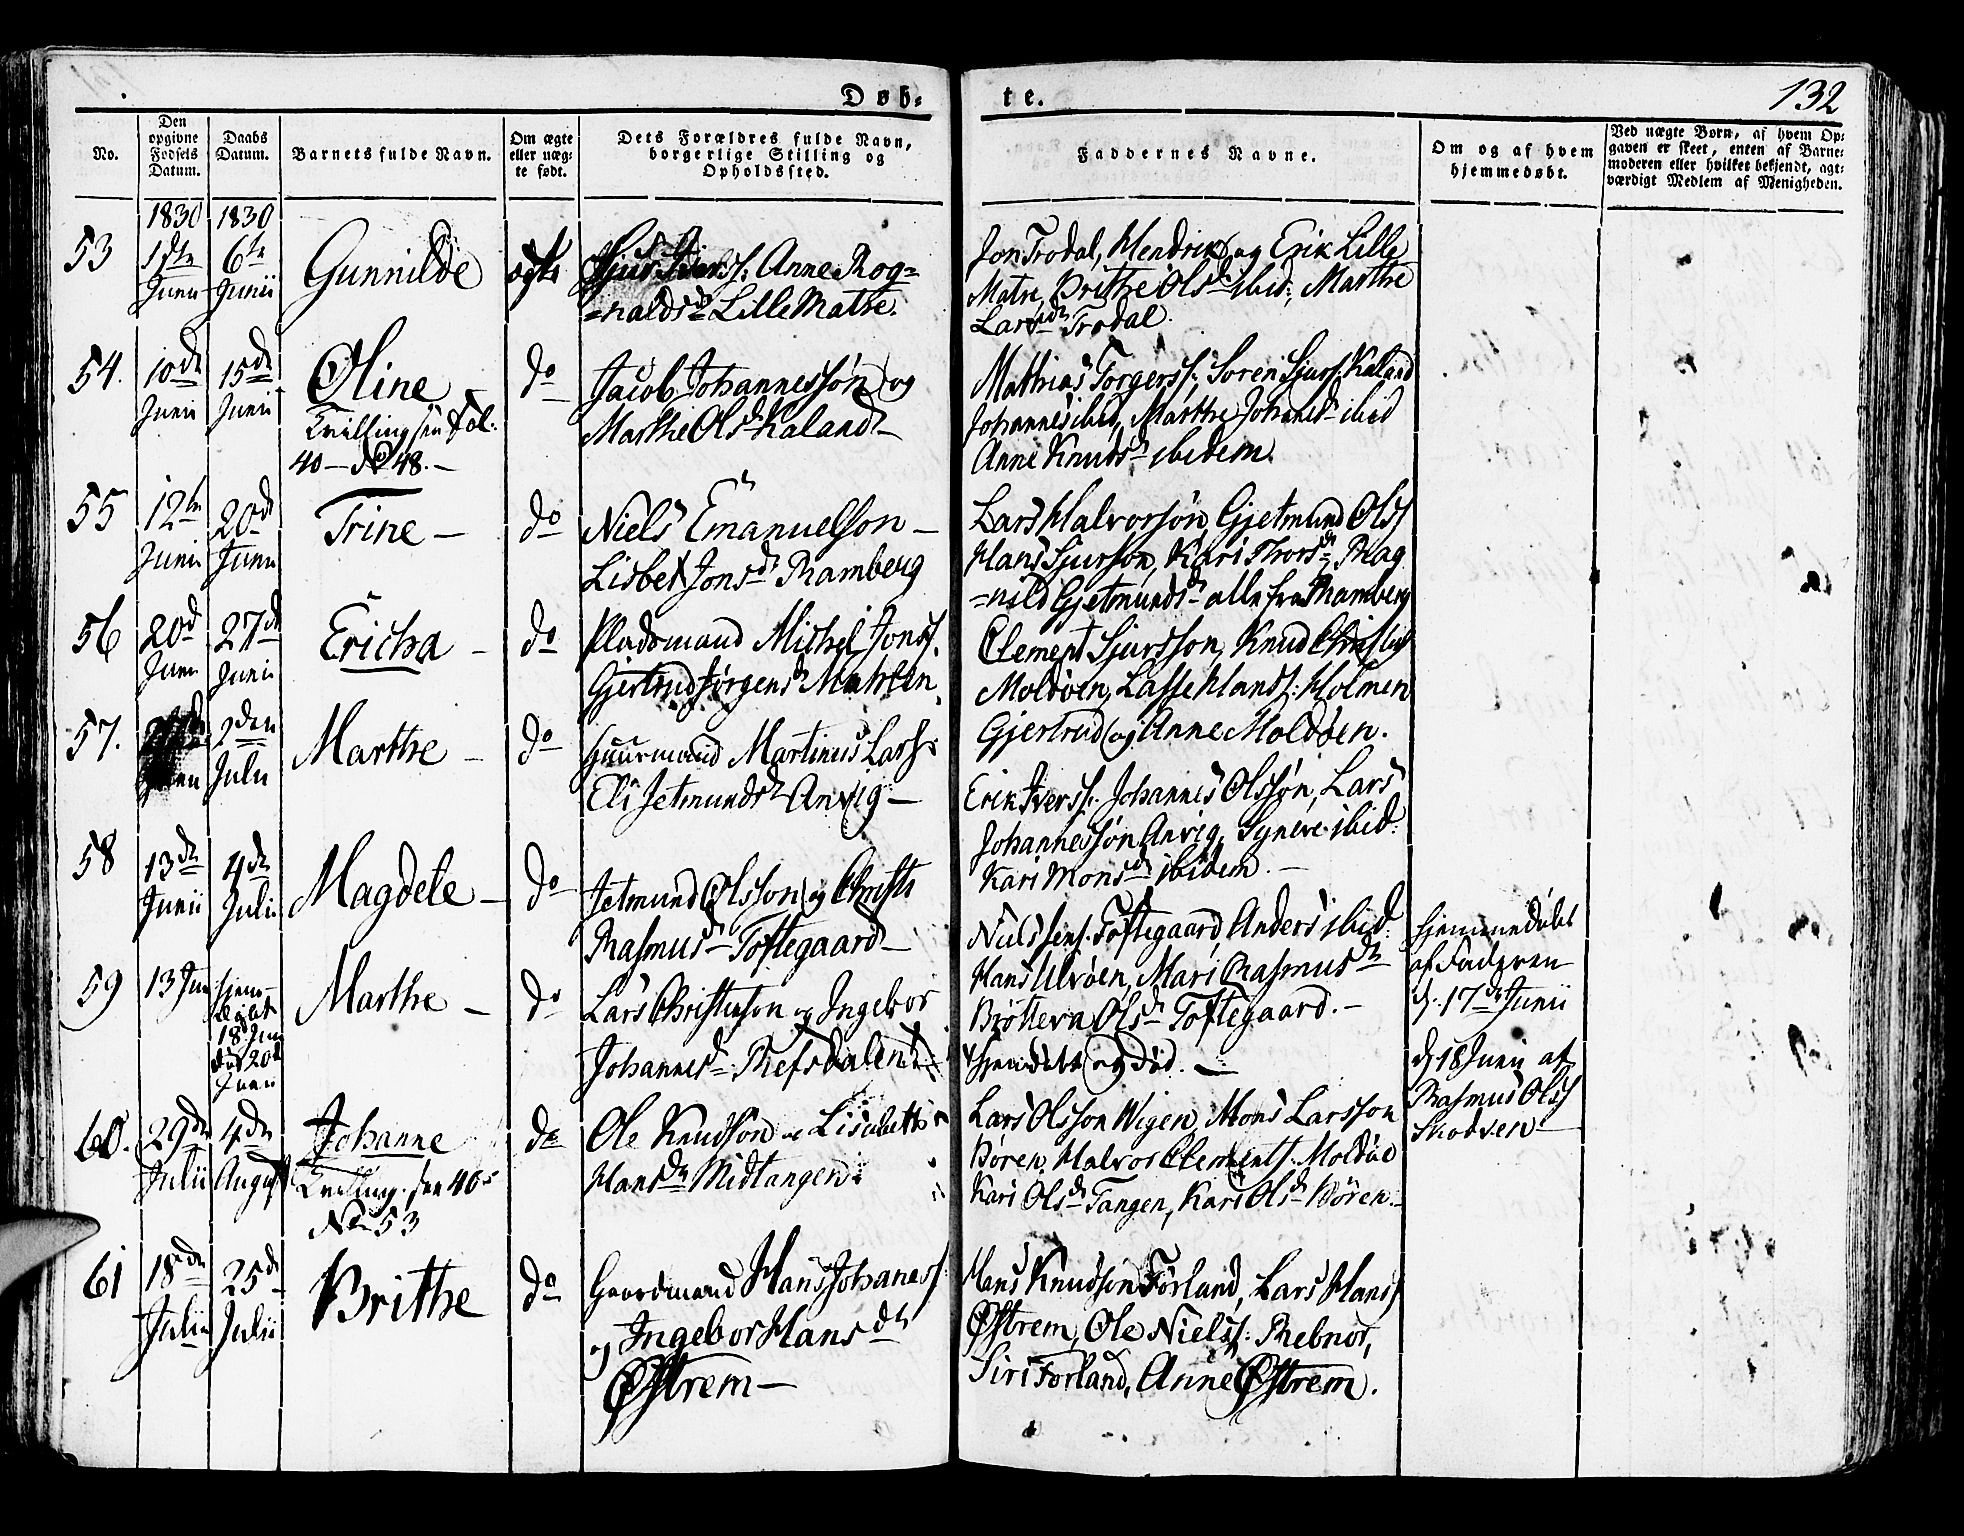 Døb-
te.
132
No.
Den opgivne Fødsels Datum.
Daabs Datum.
Barnets fulde Navn.
Om ægte eller uæg-te født.
Dets Forældres fulde Navn, borgerlige Stilling og Opholdssted.
Faddernes Navne.
Om og af hvem hjemmedøbt.
Ved uægte Børn, af hvem Op-gaven er skeet, enten af Barne-moderen eller hvilket bekjendt, agt-værdigt Medlem af Menigheden.
1830
1830
53
1ste Junii
6te Junii
Gunnilde
ægte
Anne Rog=
=naldsdr Lille Matre.
Jon Trodal, Hendrik og Erik Lille
Matre, Brithe Olsdr ibid:, Marthe
Larsdr Trodal.
54.
10de Junii
15de Junii
Oline
Tvilling see Fol.
40 - No 48. -
do
Jacob Johannessøn og
Marthe Olsdr Kaland -
Mathias Torgerss:, Søren Sjurs: Kaland
Johannes ibid, Marthe Johansdr ibid
Anne Knudsdr ibidem.
55
12te Junii
20de Junii
Trine -
do
Niels Emanuelson -
Lisbet Jonsdr Ramberg
Lars Halvorsøn, Gjetmund Olss
Hans Sjursøn, Kari Thorsdr Rag
=nild Gjetmundsdr alle fra Ramberg
56
20de Junii
27de Junii
Ericha -
do
Pladsmand Michel Jonss.
Gjertrud Jørgensdr
Clement Sjursson, Knud
Moldøen, Lasse Hanss: Holmen
Gjertrud og Anne Moldøen.
57.
2den Julii
Marthe -
do
Huusmand Martinus Larss:
Eli Jetmundsdr Anvig -
Erik Iverss:, Johannes Olssøn, Lars
Johannessøn Anvig, Syneve ibid:
Kari Monsdr ibidem. -
58
13de Junii
4de Julii
Magdele -
do
Jetmund Olsson og Christi
Rasmusdr Toftegaard -
Niels Jens: Toftegaard, Anders ibid:
Hans Ulvøen, Mari Rasmusdr
Olsdr Toftegaard. -
Hjemmedøbt
af Faderen
d. 17de Junii
59
13 Jun
hjem-
døbt
18 Jun
død 20de
Junii
Marthe -
do
Lars Christenson og Ingebor
Johannesdr Refsdalen
hjemdøbt og død. -
d. 18 Junii af
Rasmus Olss
Skodven -
60.
29de Julii
4de August
Johanne
Tvilling. see 40
No 53
do
Ole Knudsøn og Lisabeth
Hansdr Midtangen:
Lars Olsson Wigen, Mons Larsson
Børen, Halvor Clements: Moldøe
Kari Olsdr Tangen, Kari Olsdr Børen. -
61
18de Julii
25de Julii
Brithe
do
Gaardmand Hans Johaness:
og Ingebor Hansdr
Østrem -
Hans Knudson Førland, Lars Hanss
Østrem, Ole Nielss: Rebnor,
Siri Førland, Anne Østrem.